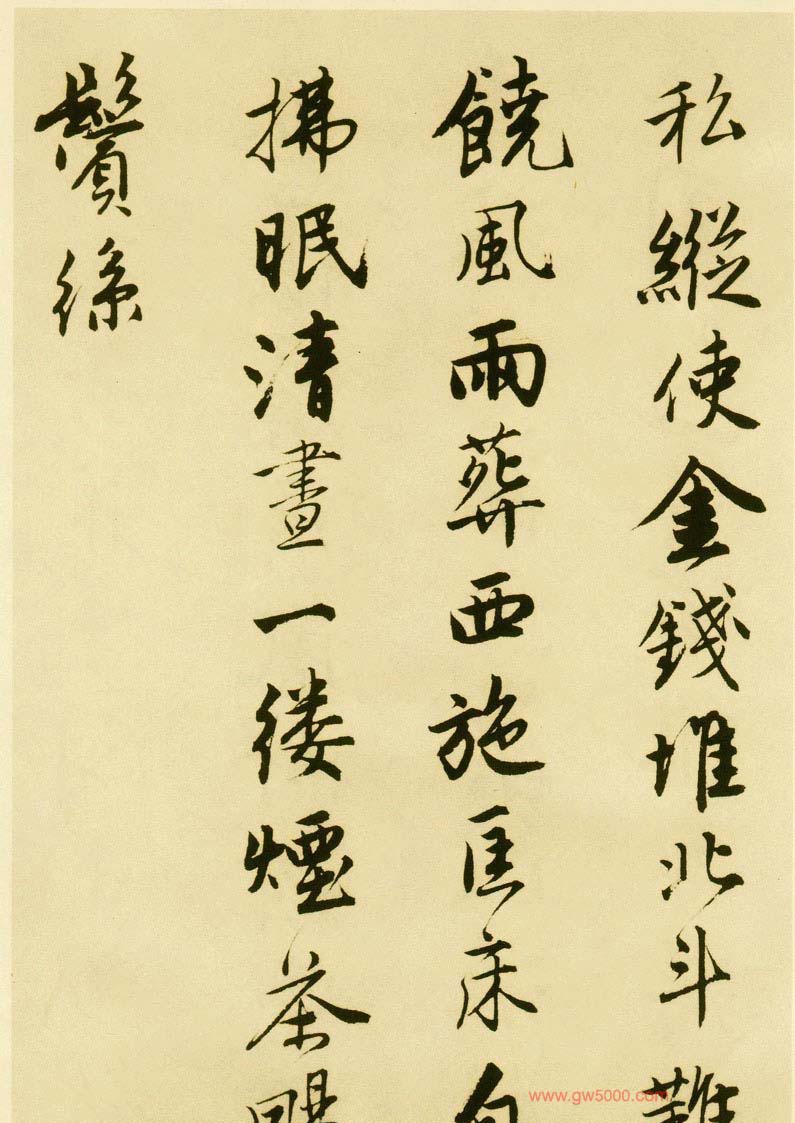 私縱使金錢堆北斗難
饒風雨葬西施匡床自
拂眠清晝一縷煙茶颺
鬢絲
www.gw5000.com